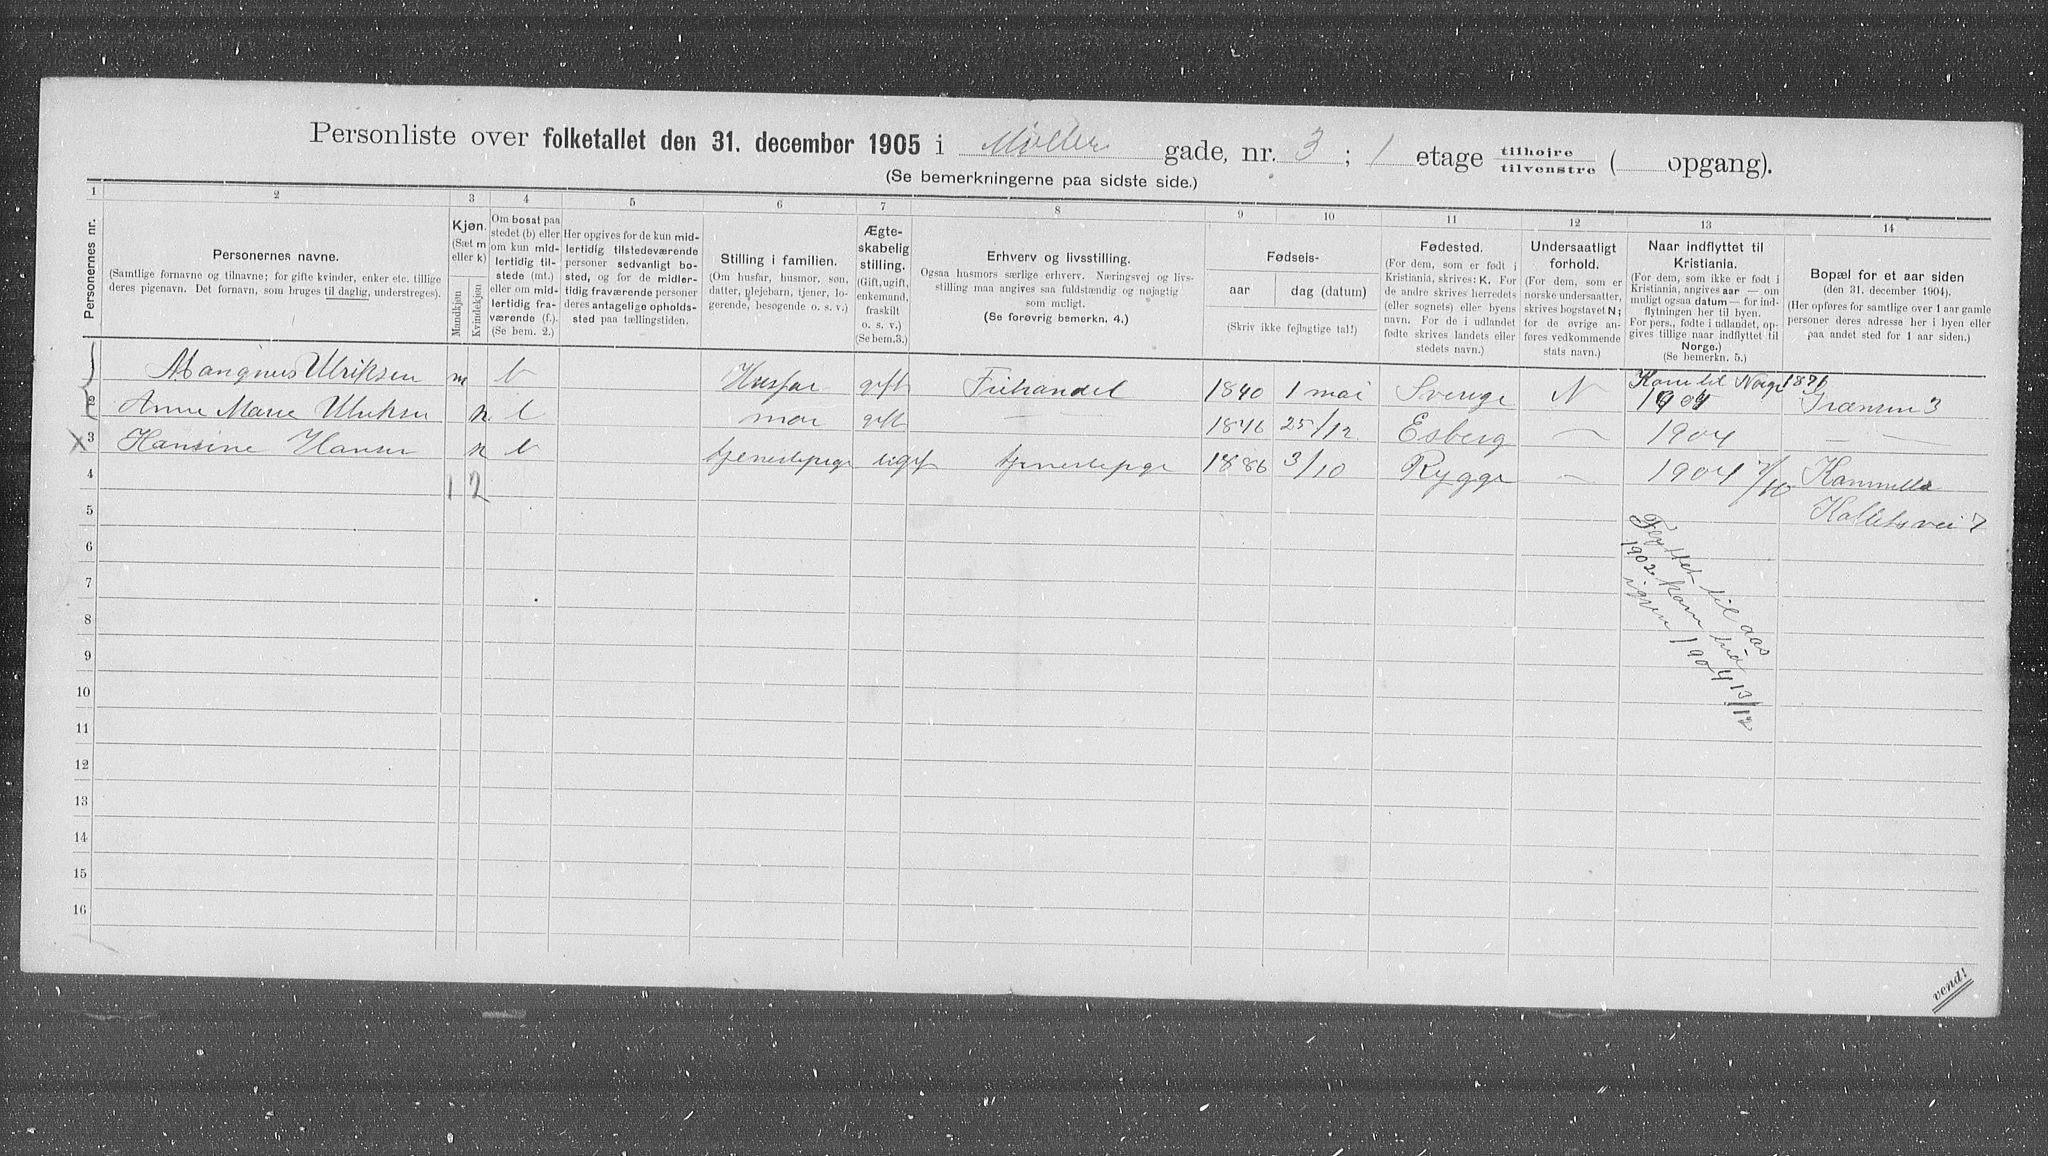 Personliste over folketallet den 31. december 1905 i Møller gade, nr. 3 ; 1 etage tilhøire / tilvenstre ( opgang).
(Se bemerkningerne paa sidste side.)
1 2 3 4 5 6 7 8 9 10 11 12 13 14
Personernes nr.
Personernes navne.
(Samtlige fornavne og tilnavne; for gifte kvinder, enker etc. tillige
deres pigenavn. Det fornavn, som bruges til daglig, understreges).
Kjøn.
(Sæt m
eller k)
Mandkjøn
Kvindekjøn
Om bosat paa
stedet (b) eller
om kun mid-
lertidig til-
stede (mt.)
eller om mid-
lertidig fra-
værende (f.).
(Se bem. 2.)
Her opgives for de kun mid-
lertidig tilstedeværende
personer sedvanligt bo-
sted, og for de midler-
tidig fraværende personer
deres antagelige opholds-
sted paa tællingstiden.
Stilling i familien.
(Om husfar, husmor, søn,
datter, plejebarn, tjener, lo-
gerende, besøgende o. s. v.)
Ægte-
skabelig
stilling.
(Gift, ugift,
enkemand,
fraskilt
o. s. v.)
(Se bem.3.)
Erhverv og livsstilling.
Ogsaa husmors særlige erhverv. Næringsvej og livs-
stilling maa angives saa fuldstændig og nøjagtig
som muligt.
(Se forøvrig bemerkn. 4.)
Fødsels-
aar
dag (datum)
(Skriv ikke fejlagtige tal!)
Fødested.
(For dem, som er født i
Kristiania, skrives: K. For
de andre skrives herredets
(eller sognets) eller byens
navn. For de i udlandet
fødte skrives landets eller
stedets navn.)
Undersaatligt
forhold.
(For dem, som er
norske undersaatter,
skrives bogstavet N;
for de øvrige an-
føres vedkommende
stats navn.)
Naar indflyttet til
Kristiania.
(For dem, som ikke er født i
Kristiania, angives aar — om
muligt ogsaa datum — for ind-
flytningen her til byen.
For pers., fødte i udlandet, op-
gives tillige naar indflyttet til
Norge.)
(Se bemerkn. 5.)
Bopæl for et aar siden
(den 31. december 1904).
(Her opføres for samtlige over 1 aar gamle
personer deres adresse her i byen eller
paa andet sted for 1 aar siden.)
Mangnus Ulriksen m b Husfar gift Frihandel 1840 1 mai Sverige N Kom til Norge 1871 1904 Grænsen 3
2 Anne Marie Ulriksen k b mor gift — 1846 25/12 Esberg — 1904 — —
x 3 Hansine Hansen k b tjenestepige ugift tjenestepige 1886 3/10 Rygge — 1904 Kammilla
4 1 2
5 Kolletsvei 7
6 Flyttet til aas
7 1902 kom
8 igjen 1904 13/12
9
10
11
12
13
14
15
16
vend!